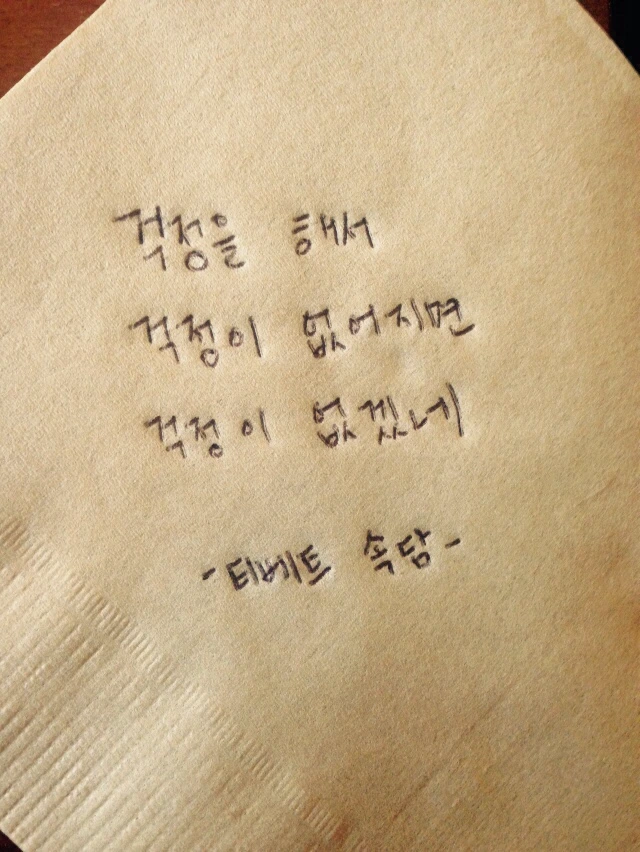 걱정을 해서
걱정이 없어지면
걱정이 없겠네
-티베트 속담-